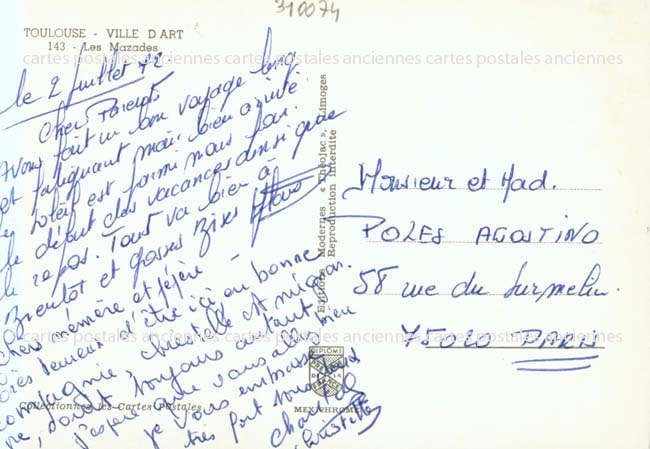 310074
TOULOUSE - VILLE D'ART
143 - Les Mazades
cartes postales anciennes cartes postales anciennes cartes postales anciennes
le 2 Juillet 72
Chers Parents
Avons fait un bon voyage long
et fatiguant mais bien arrivé
le soleil est parmi nous pour
le début des vacances ainsi que
le repos. Tout va bien à
Bientot et Grosses Bises
Chers mémère et pépère -
très heureux d'être ici en bonne
compagnie, christelle est mignon
ne, sourit toujours autant
j'espère que vous allez bien
je vous embrasse
très fort tous
Chantal
Christelle
cartes postales anciennes cartes postales anciennes cartes postales anciennes
Collectionnez les Cartes Postales
Editions Modernes « Théojac », Limoges
Reproduction Interdite
DIPLOME
DE LA
MEXICHROME
Monsieur et Mad.
POLES AGOSTINO
58 rue du Surmelin.
75020 PARI